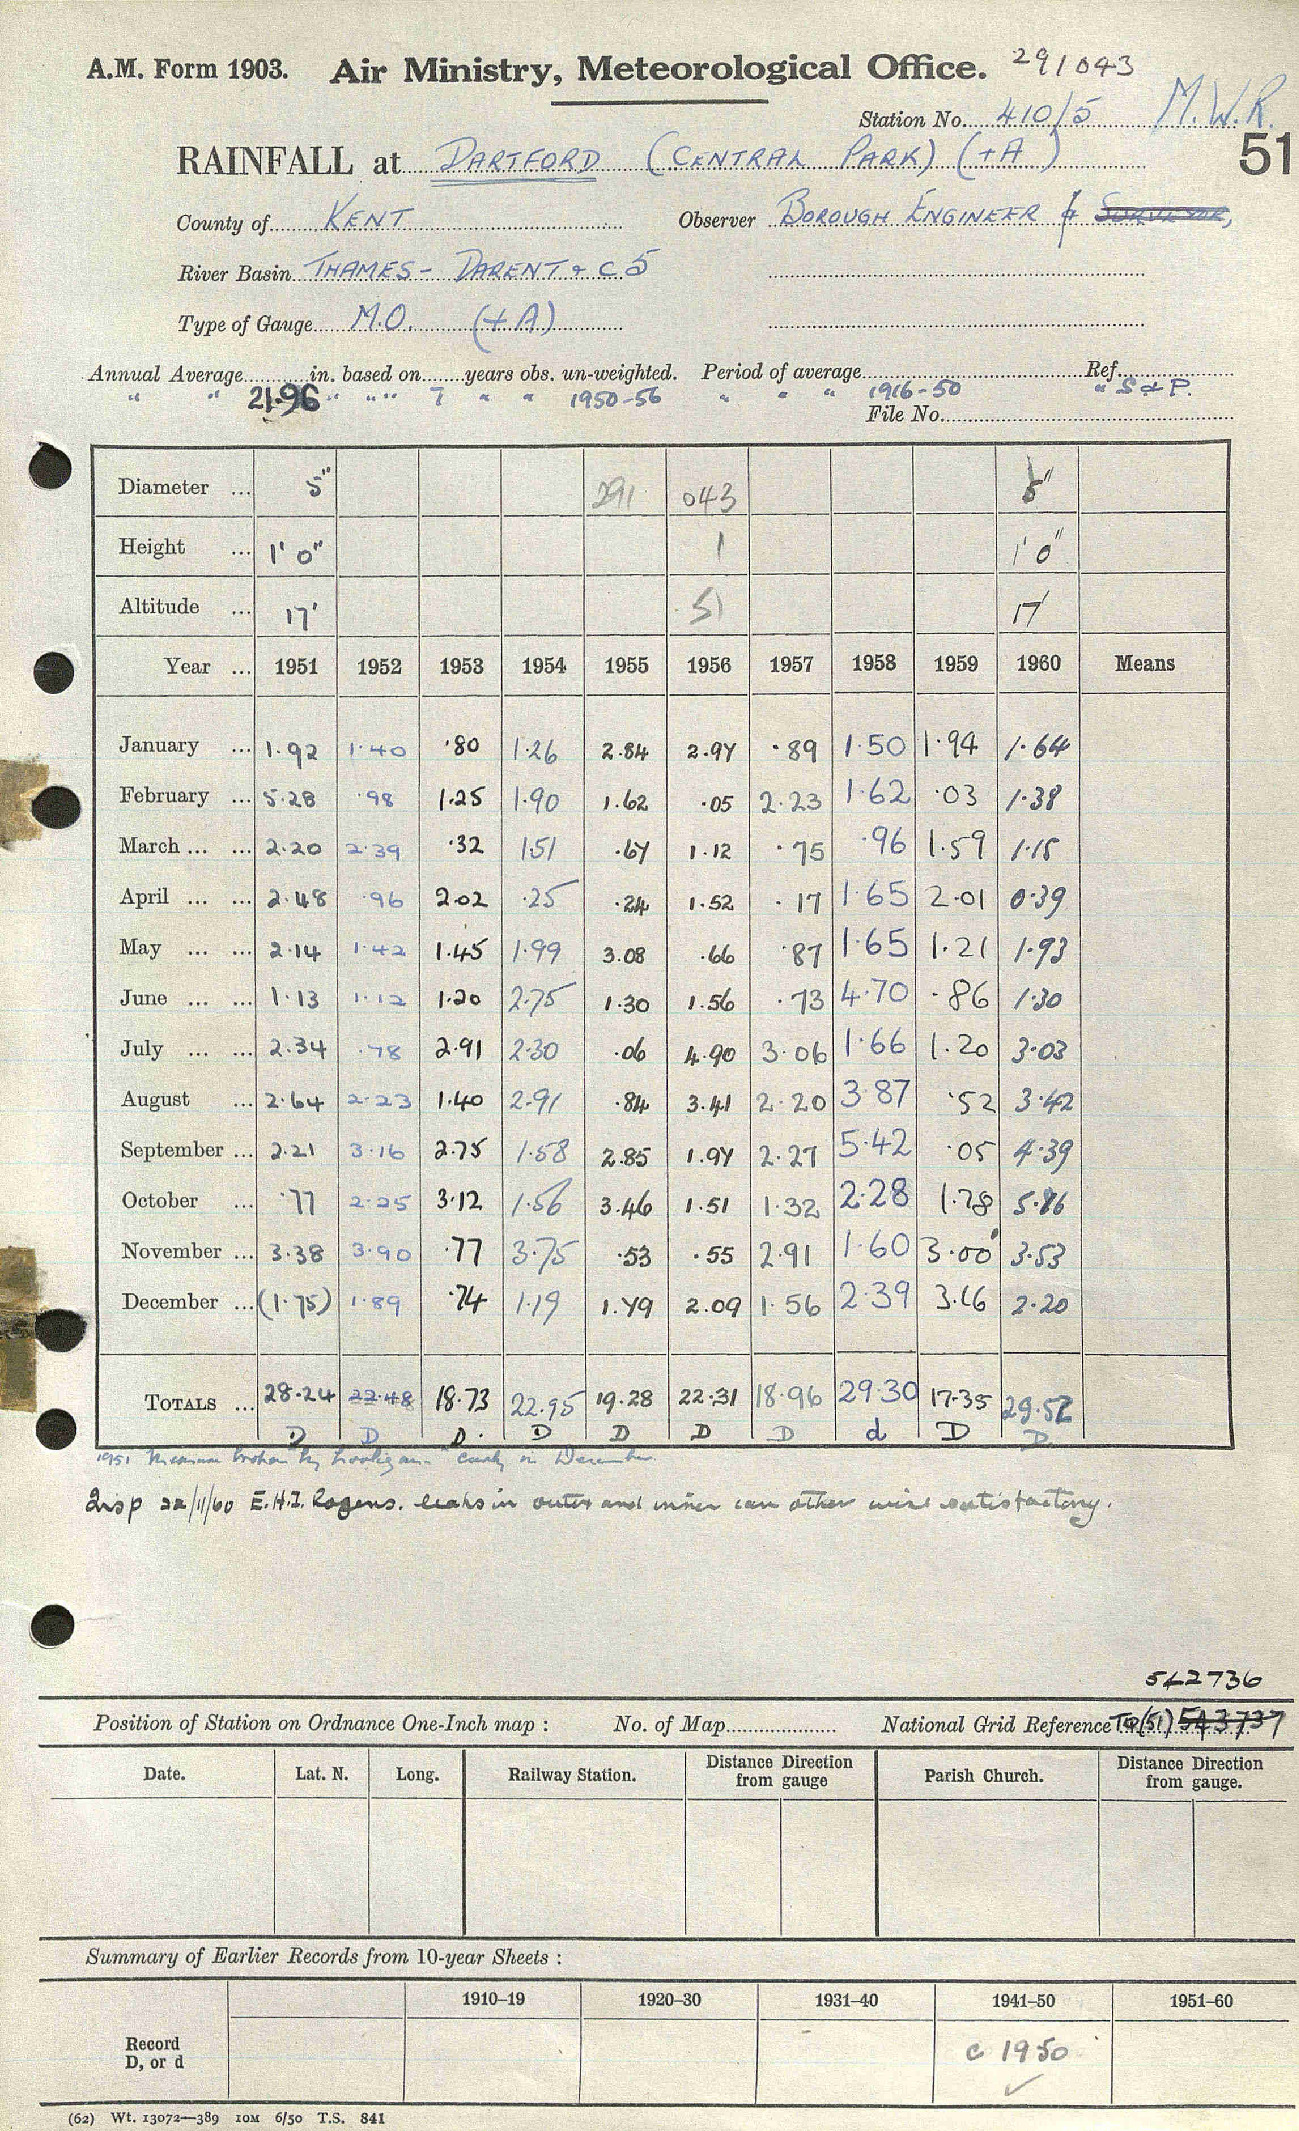 A.M. Form 1903. Air Ministry, Meteorological Office. 291043
Station No. 410/5 M.W.R.
RAINFALL at DARTFORD (CENTRAL PARK) (+A) 51
County of KENT Observer BOROUGH ENGINEER & SURVEYOR,
River Basin THAMES - DARENT & C 5
Type of Gauge M.O. (+A)
Annual Average in. based on years obs. un-weighted. Period of average Ref.
" " 21.96 " " " 7 " " 1950-56 " " " 1916-50 " S & P.
File No.
Diameter ... 5" 291 043 5"
Height ... 1' 0" 1 1' 0"
Altitude ... 17' 51 17'
Year ... 1951 1952 1953 1954 1955 1956 1957 1958 1959 1960 Means
January ... 1.92 1.40 .80 1.26 2.84 2.97 .89 1.50 1.94 1.64
February ... 5.28 .98 1.25 1.90 1.62 .05 2.23 1.62 .03 1.38
March ... ... 2.20 2.39 .32 1.51 .67 1.12 .75 .96 1.59 1.15
April ... ... 2.48 .96 2.02 .25 .24 1.52 .17 1.65 2.01 0.39
May ... ... 2.14 1.42 1.45 1.99 3.08 .66 .87 1.65 1.21 1.93
June ... ... 1.13 1.12 1.20 2.75 1.30 1.56 .73 4.70 .86 1.30
July ... ... 2.34 .78 2.91 2.30 .06 4.90 3.06 1.66 1.20 3.03
August ... 2.64 2.23 1.40 2.91 .84 3.41 2.20 3.87 .52 3.42
September ... 2.21 3.16 2.75 1.58 2.85 1.97 2.27 5.42 .05 4.39
October ... .77 2.25 3.12 1.56 3.46 1.51 1.32 2.28 1.28 5.16
November ... 3.38 3.90 .77 3.75 .53 .55 2.91 1.60 3.00 3.53
December ... (1.75) 1.89 .74 1.19 1.79 2.09 1.56 2.39 3.66 2.20
TOTALS ... 28.24 22.48 18.73 22.95 19.28 22.31 18.96 29.30 17.35 29.52
D D D. D D D D d D D
1951 Measure broken by hooligans early in December.
Insp 22/11/60 E.H.I. Rogers. leaks in outer and inner can otherwise satisfactory.
542736
Position of Station on Ordnance One-Inch map : No. of Map National Grid Reference TQ(51) 543737
Date. Lat. N. Long. Railway Station. Distance from gauge Direction Parish Church. Distance from gauge. Direction
Summary of Earlier Records from 10-year Sheets :
1910–19 1920–30 1931–40 1941–50 1951–60
Record D, or d c 1950 ✓
(62) Wt. 13072—389 10M 6/50 T.S. 841